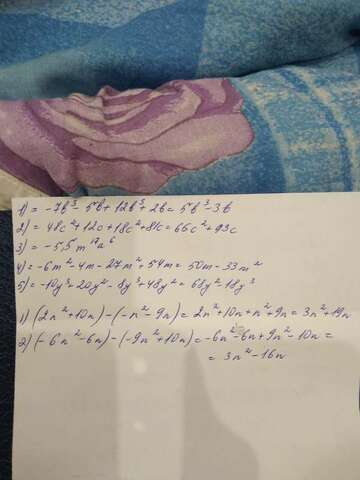 1) = -7b³ - 5b + 12b³ + 2b = 5b³ - 3b
2) = 48c² + 12c + 18c² + 81c = 66c² + 93c
3) = -5,5m¹⁷a⁶
4) = -6m² - 4m - 27m² + 54m = 50m - 33m²
5) = -10y³ + 20y² - 8y³ + 48y² = 68y² - 18y³
1) (2n² + 10n) - (-n² - 9n) = 2n² + 10n + n² + 9n = 3n² + 19n
2) (-6n² - 6n) - (-9n² + 10n) = -6n² - 6n + 9n² - 10n =
= 3n² - 16n